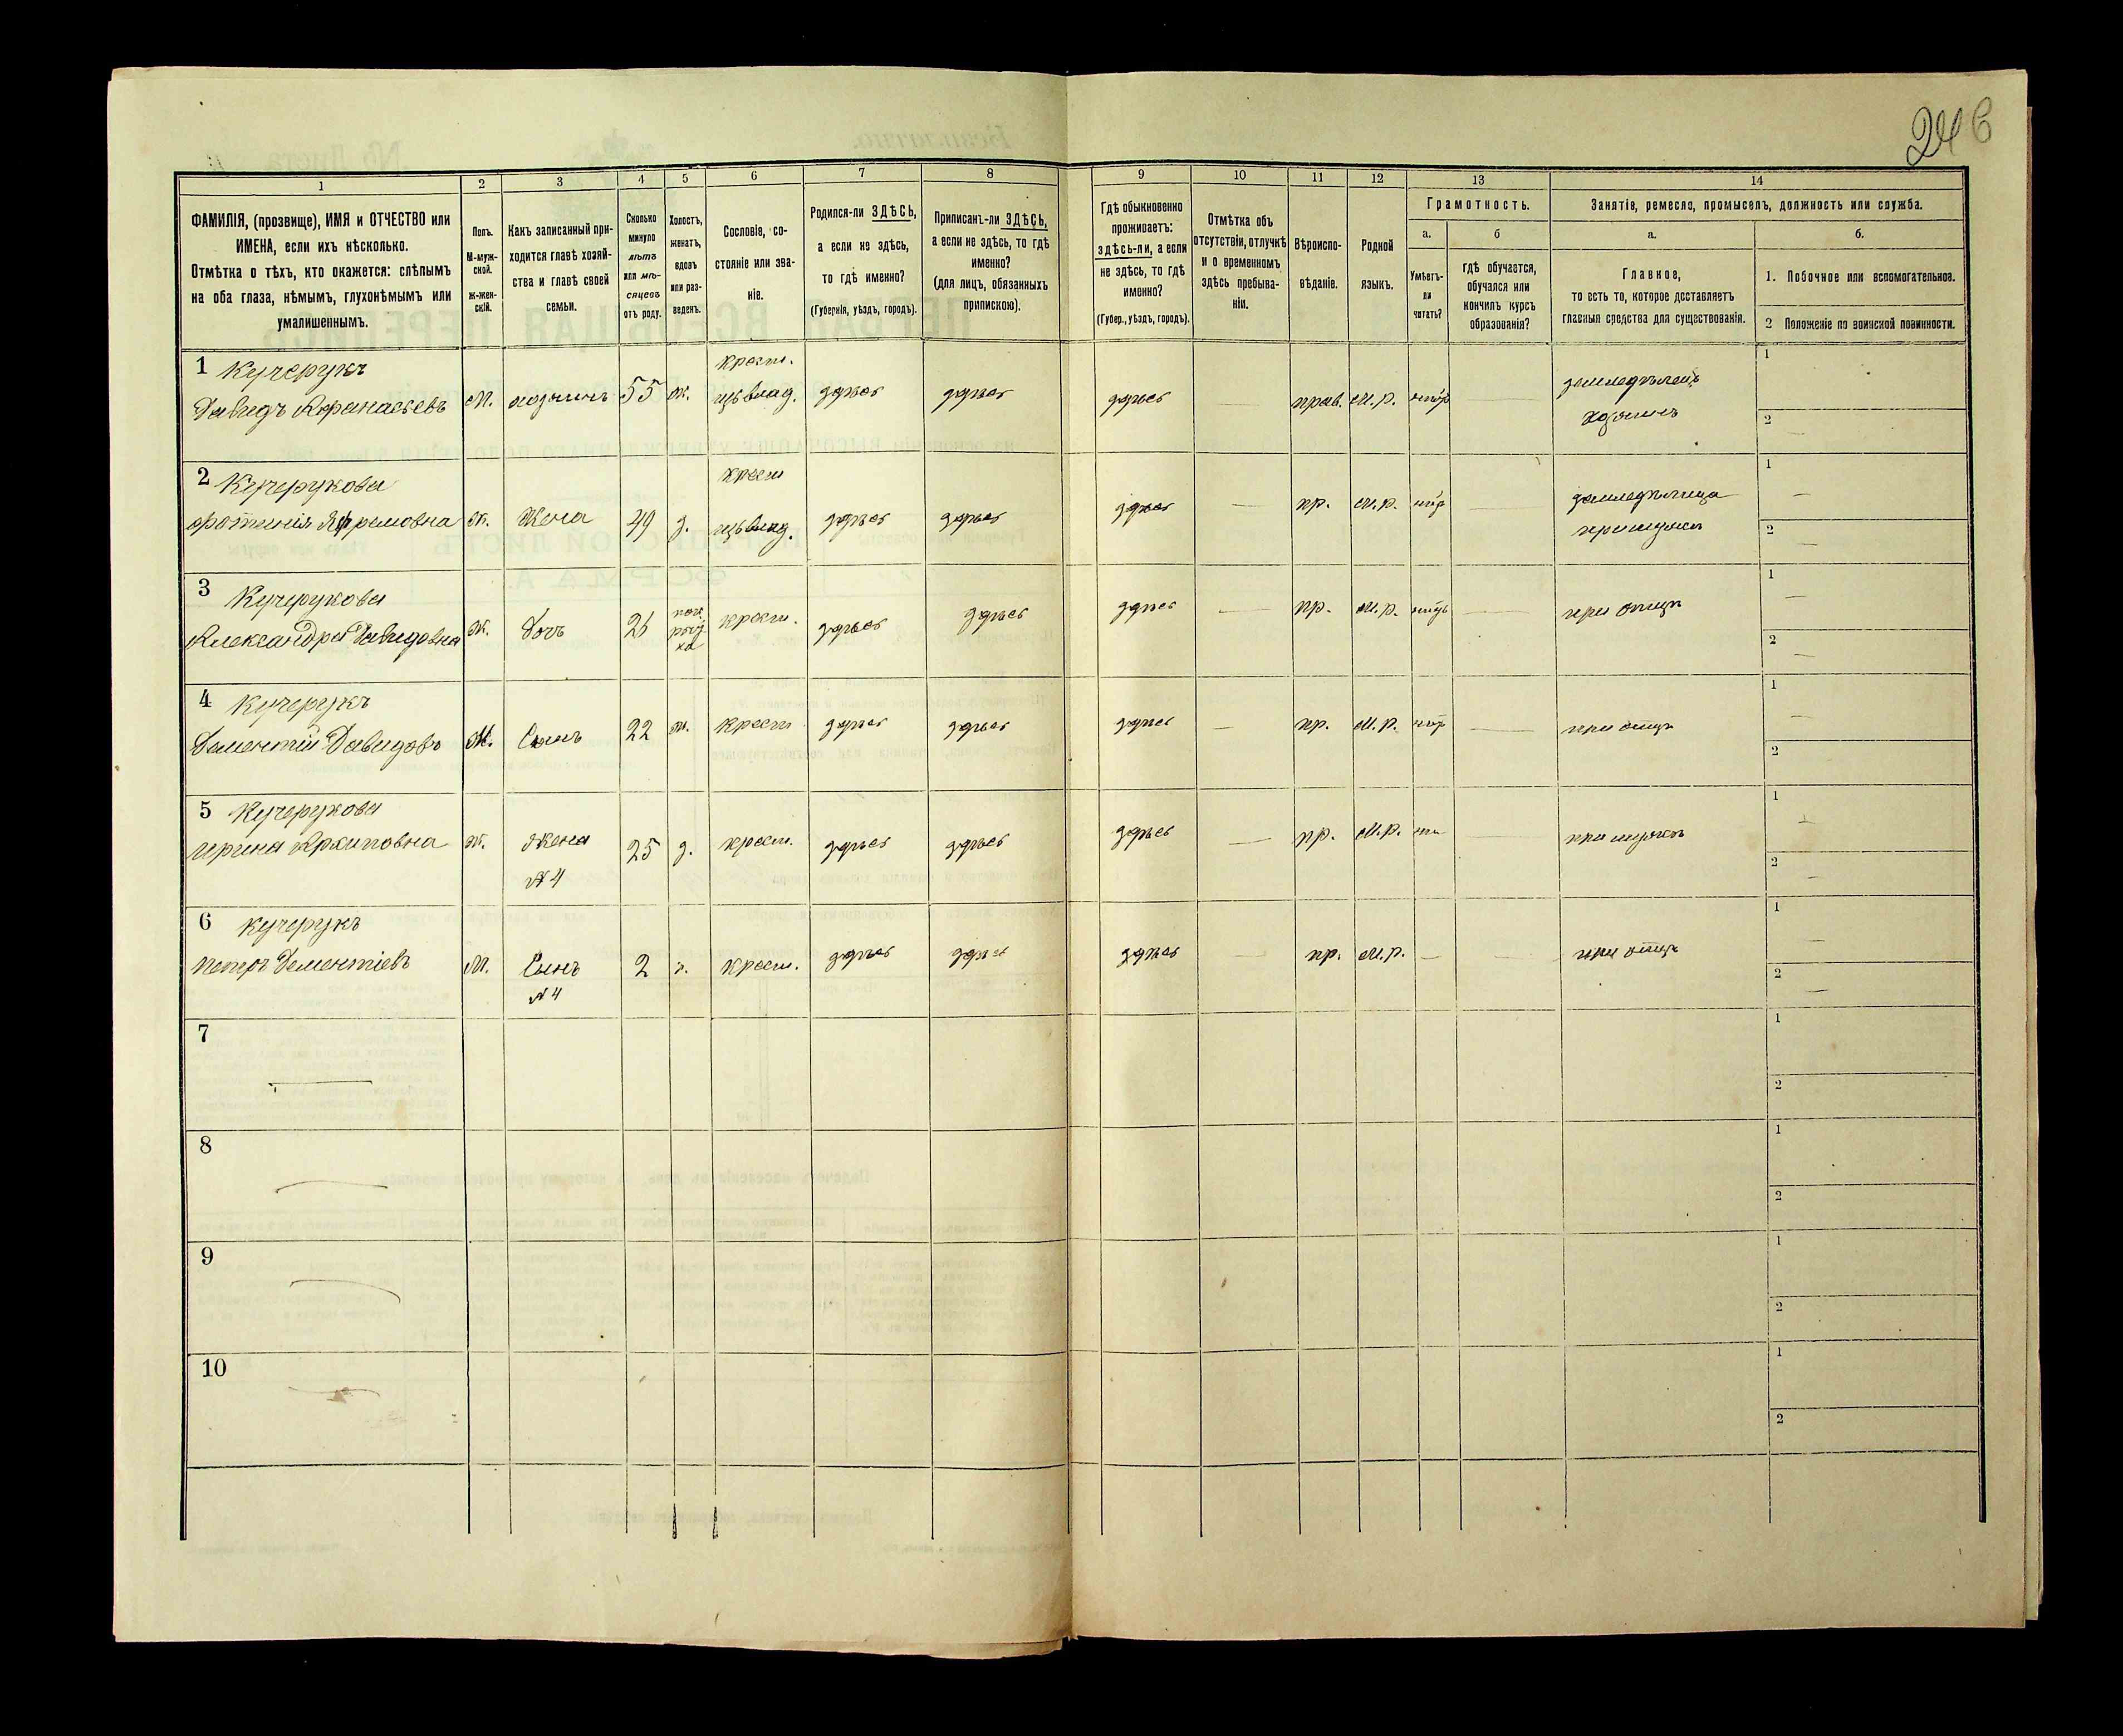 246
1
2
3
4
5
6
7
8
9
10
11
12
13
14
ФАМИЛІЯ, (прозвище), ИМЯ и ОТЧЕСТВО или
ИМЕНА, если ихъ нѣсколько.
Отмѣтка о тѣхъ, кто окажется: слѣпымъ
на оба глаза, нѣмымъ, глухонѣмымъ или
умалишеннымъ.
Полъ.
М-муж-
ской.
ж-жен-
скій.
Какъ записанный при-
ходится главѣ хозяй-
ства и главѣ своей
семьи.
Сколько
минуло
лѣтъ
или мѣ-
сяцевъ
отъ роду.
Холостъ,
женатъ,
вдовъ
или раз-
веденъ.
Сословіе, со-
стояніе или зва-
ніе.
Родился-ли ЗДѢСЬ,
а если не здѣсь,
то гдѣ именно?
(Губернія, уѣздъ, городъ).
Приписанъ-ли ЗДѢСЬ,
а если не здѣсь, то гдѣ
именно?
(для лицъ, обязанныхъ
припискою).
Гдѣ обыкновенно
проживаетъ:
здѣсь-ли, а если
не здѣсь, то гдѣ
именно?
(Губер., уѣздъ, городъ).
Отмѣтка объ
отсутствіи, отлучкѣ
и о временномъ
здѣсь пребыва-
ніи.
Вѣроиспо-
вѣданіе.
Родной
языкъ.
Грамотность.
а.
б
Умѣетъ-
ли
читать?
гдѣ обучается,
обучался или
кончилъ курсъ
образованія?
Занятіе, ремесло, промыселъ, должность или служба.
а.
б.
Главное,
то есть то, которое доставляетъ
главныя средства для существованія.
1. Побочное или вспомогательное.
2 Положеніе по воинской повинности.
1 Кучерукъ
Давидъ Афанасьевъ
М.
хозяинъ
55
ж.
крест.
здѣсь
здѣсь
здѣсь
прав.
М.р.
хозяинъ
1
2
2 Кучерукова
Ефремовна
ж.
Жена
49
з.
крест
здѣсь
здѣсь
здѣсь
пр.
М.р.
при мужѣ
1
2
3 Кучерукова
Александра Давидовна
ж.
Дочь
крест.
здѣсь
здѣсь
здѣсь
пр.
М.р.
при отцѣ
1
2
4 Кучерукъ
Дементій Давидовъ
М.
Сынъ
22
ж.
крест
здѣсь
здѣсь
здѣсь
пр.
М.р.
при отцѣ
1
2
5 Кучерукова
Ирина Архиповна
ж.
Жена
№4
25
з.
крест.
здѣсь
здѣсь
здѣсь
пр.
М.р.
при мужѣ
1
2
6 Кучерукъ
Петръ Дементіевъ
М.
Сынъ
№4
2
крест.
здѣсь
здѣсь
здѣсь
пр.
М.р.
при отцѣ
1
2
7
1
2
8
1
2
9
1
2
10
1
2